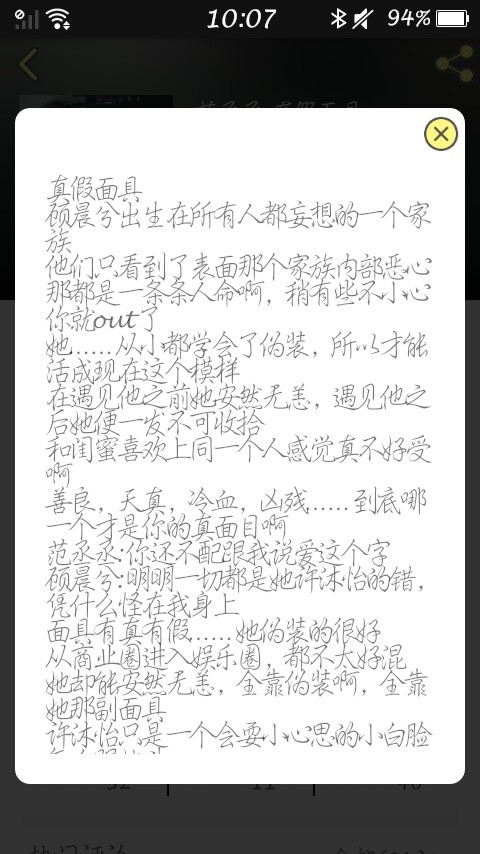 10:07
94%
真假面具
顾晨兮出生在所有人都妄想的一个家
族
他们只看到了表面那个家族内部恶心
那都是一条条人命啊，稍有些不小心
你就out了
她……从小都学会了伪装，所以才能
活成现在这个模样
在遇见他之前她安然无恙，遇见他之
后她便一发不可收拾
和闺蜜喜欢上同一个人感觉真不好受
啊
善良，天真，冷血，凶残……到底哪
一个才是你的真面目啊
范丞丞:你还不配跟我说爱这个字
顾晨兮:明明一切都是她许沐怡的错，
凭什么怪在我身上
面具有真有假……她伪装的很好
从商业圈进入娱乐圈，都不太好混
她却能安然无恙，全靠伪装啊，全靠
她那副面具
许沐怡只是一个会耍小心思的小白脸